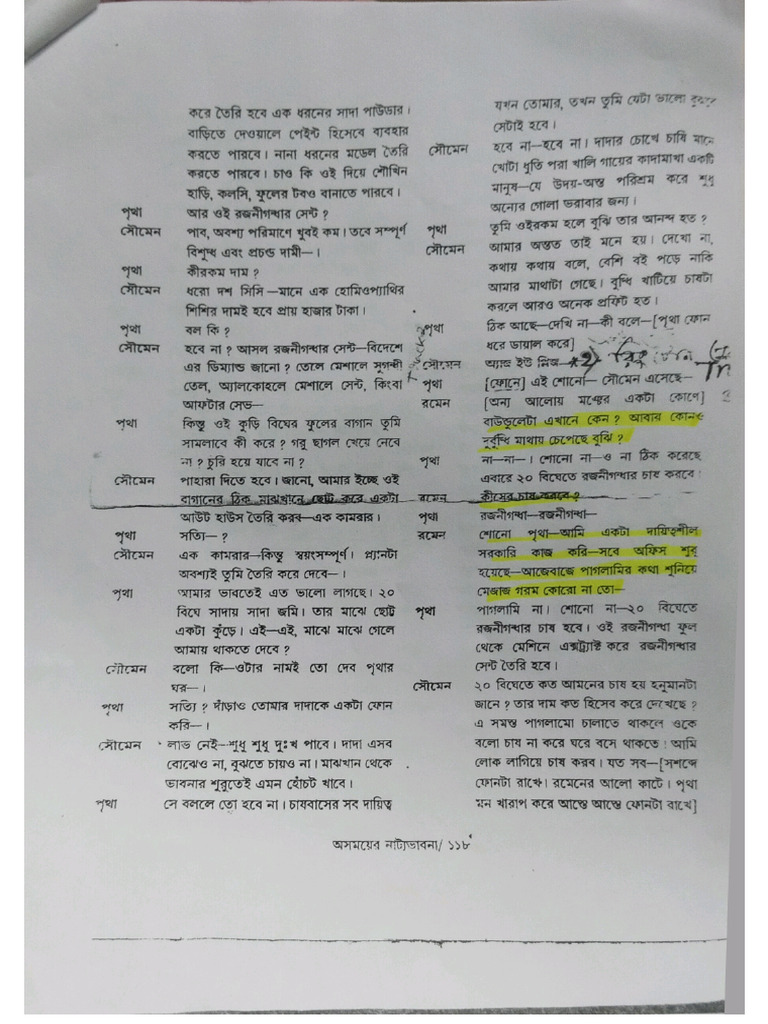 করে তৈরি হবে এক ধরনের সাদা পাউডার।
বাড়িতে দেওয়ালে পেইন্ট হিসেবে ব্যবহার
করতে পারবে। নানা ধরনের মডেল তৈরি
করতে পারবে। চাও কি ওই দিয়ে শৌখিন
হাড়ি, কলসি, ফুলের টবও বানাতে পারবে।
পৃথা আর ওই রজনীগন্ধার সেন্ট ?
সৌমেন পাব, অবশ্য পরিমাণে খুবই কম। তবে সম্পূর্ণ
বিশুদ্ধ এবং প্রচন্ড দামী—।
পৃথা কীরকম দাম ?
সৌমেন ধরো দশ সিসি—মানে এক হোমিওপ্যাথির
শিশির দামই হবে প্রায় হাজার টাকা।
পৃথা বল কি ?
সৌমেন হবে না ? আসল রজনীগন্ধার সেন্ট—বিদেশে
এর ডিম্যান্ড জানো ? তেলে মেশালে সুগন্ধী
তেল, অ্যালকোহলে মেশালে সেন্ট, কিংবা
আফটার সেভ—
পৃথা কিন্তু ওই কুড়ি বিঘের ফুলের বাগান তুমি
সামলাবে কী করে ? গরু ছাগল খেয়ে নেবে
না ? চুরি হয়ে যাবে না ?
সৌমেন পাহারা দিতে হবে। জানো, আমার ইচ্ছে ওই
বাগানের ঠিক মাঝখানে ছোট করে একটা
আউট হাউস তৈরি করব—এক কামরার।
পৃথা সত্যি—?
সৌমেন এক কামরার—কিন্তু স্বয়ংসম্পূর্ণ। প্ল্যানটা
অবশ্যই তুমি তৈরি করে দেবে—।
পৃথা আমার ভাবতেই এত ভালো লাগছে। ২০
বিঘে সাদায় সাদা জমি। তার মাঝে ছোট্ট
একটা কুঁড়ে। এই—এই, মাঝে মাঝে গেলে
আমায় থাকতে দেবে ?
সৌমেন বলো কি—ওটার নামই তো দেব পৃথার
ঘর—।
পৃথা সত্যি ? দাঁড়াও তোমার দাদাকে একটা ফোন
করি—।
সৌমেন লাভ নেই—শুধু শুধু দুঃখ পাবে। দাদা এসব
বোঝেও না, বুঝতে চায়ও না। মাঝখান থেকে
ভাবনার শুরুতেই এমন হোঁচট খাবে।
পৃথা সে বললে তো হবে না। চাষবাসের সব দায়িত্ব
যখন তোমার, তখন তুমি যেটা ভালো বুঝবে
সেটাই হবে।
সৌমেন হবে না—হবে না। দাদার চোখে চাষি মানে
খোটা ধুতি পরা খালি গায়ের কাদামাখা একটি
মানুষ—যে উদয়-অস্ত পরিশ্রম করে শুধু
অন্যের গোলা ভরাবার জন্য।
পৃথা তুমি ওইরকম হলে বুঝি তার আনন্দ হত ?
সৌমেন আমার অন্তত তাই মনে হয়। দেখো না,
কথায় কথায় বলে, বেশি বই পড়ে নাকি
আমার মাথাটা গেছে। বুদ্ধি খাটিয়ে চাষটা
করলে আরও অনেক প্রফিট হত।
পৃথা ঠিক আছে—দেখি না—কী বলে—[পৃথা ফোন
ধরে ডায়াল করে]
সৌমেন অ্যাজ ইউ প্লিজ
পৃথা [ফোনে] এই শোনো— সৌমেন এসেছে—
রমেন [অন্য আলোয় মঞ্চের একটা কোণে]
বাউন্ডুলেটা এখানে কেন ? আবার কোনও
দুর্বুদ্ধি মাথায় চেপেছে বুঝি ?
পৃথা না—না—। শোনো না—ও না ঠিক করেছে
এবারে ২০ বিঘেতে রজনীগন্ধার চাষ করবে।
রমেন কীসের চাষ করবে ?
পৃথা রজনীগন্ধা—রজনীগন্ধা—
রমেন শোনো পৃথা—আমি একটা দায়িত্বশীল
সরকারি কাজ করি—সবে অফিস শুরু
হয়েছে—আজেবাজে পাগলামির কথা শুনিয়ে
মেজাজ গরম কোরো না তো—
পৃথা পাগলামি না। শোনো না—২০ বিঘেতে
রজনীগন্ধার চাষ হবে। ওই রজনীগন্ধা ফুল
থেকে মেশিনে এক্সট্র্যাক্ট করে রজনীগন্ধার
সেন্ট তৈরি হবে।
সৌমেন ২০ বিঘেতে কত আমনের চাষ হয় হনুমানটা
জানে ? তার দাম কত হিসেব করে দেখেছে ?
এ সমস্ত পাগলামো চালাতে থাকলে ওকে
বলো চাষ না করে ঘরে বসে থাকতে। আমি
লোক লাগিয়ে চাষ করব। যত সব—[সশব্দে
ফোনটা রাখে। রমেনের আলো কাটে। পৃথা
মন খারাপ করে আস্তে আস্তে ফোনটা রাখে]
অসময়ের নাট্যভাবনা/ ১১৮